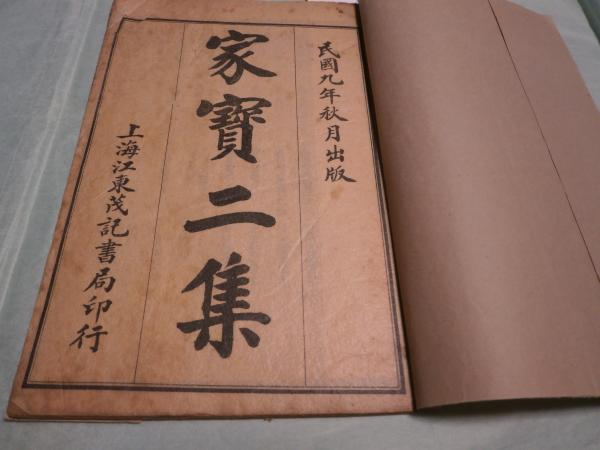 民國九年秋月出版
家寶二集
上海江東茂記書局印行